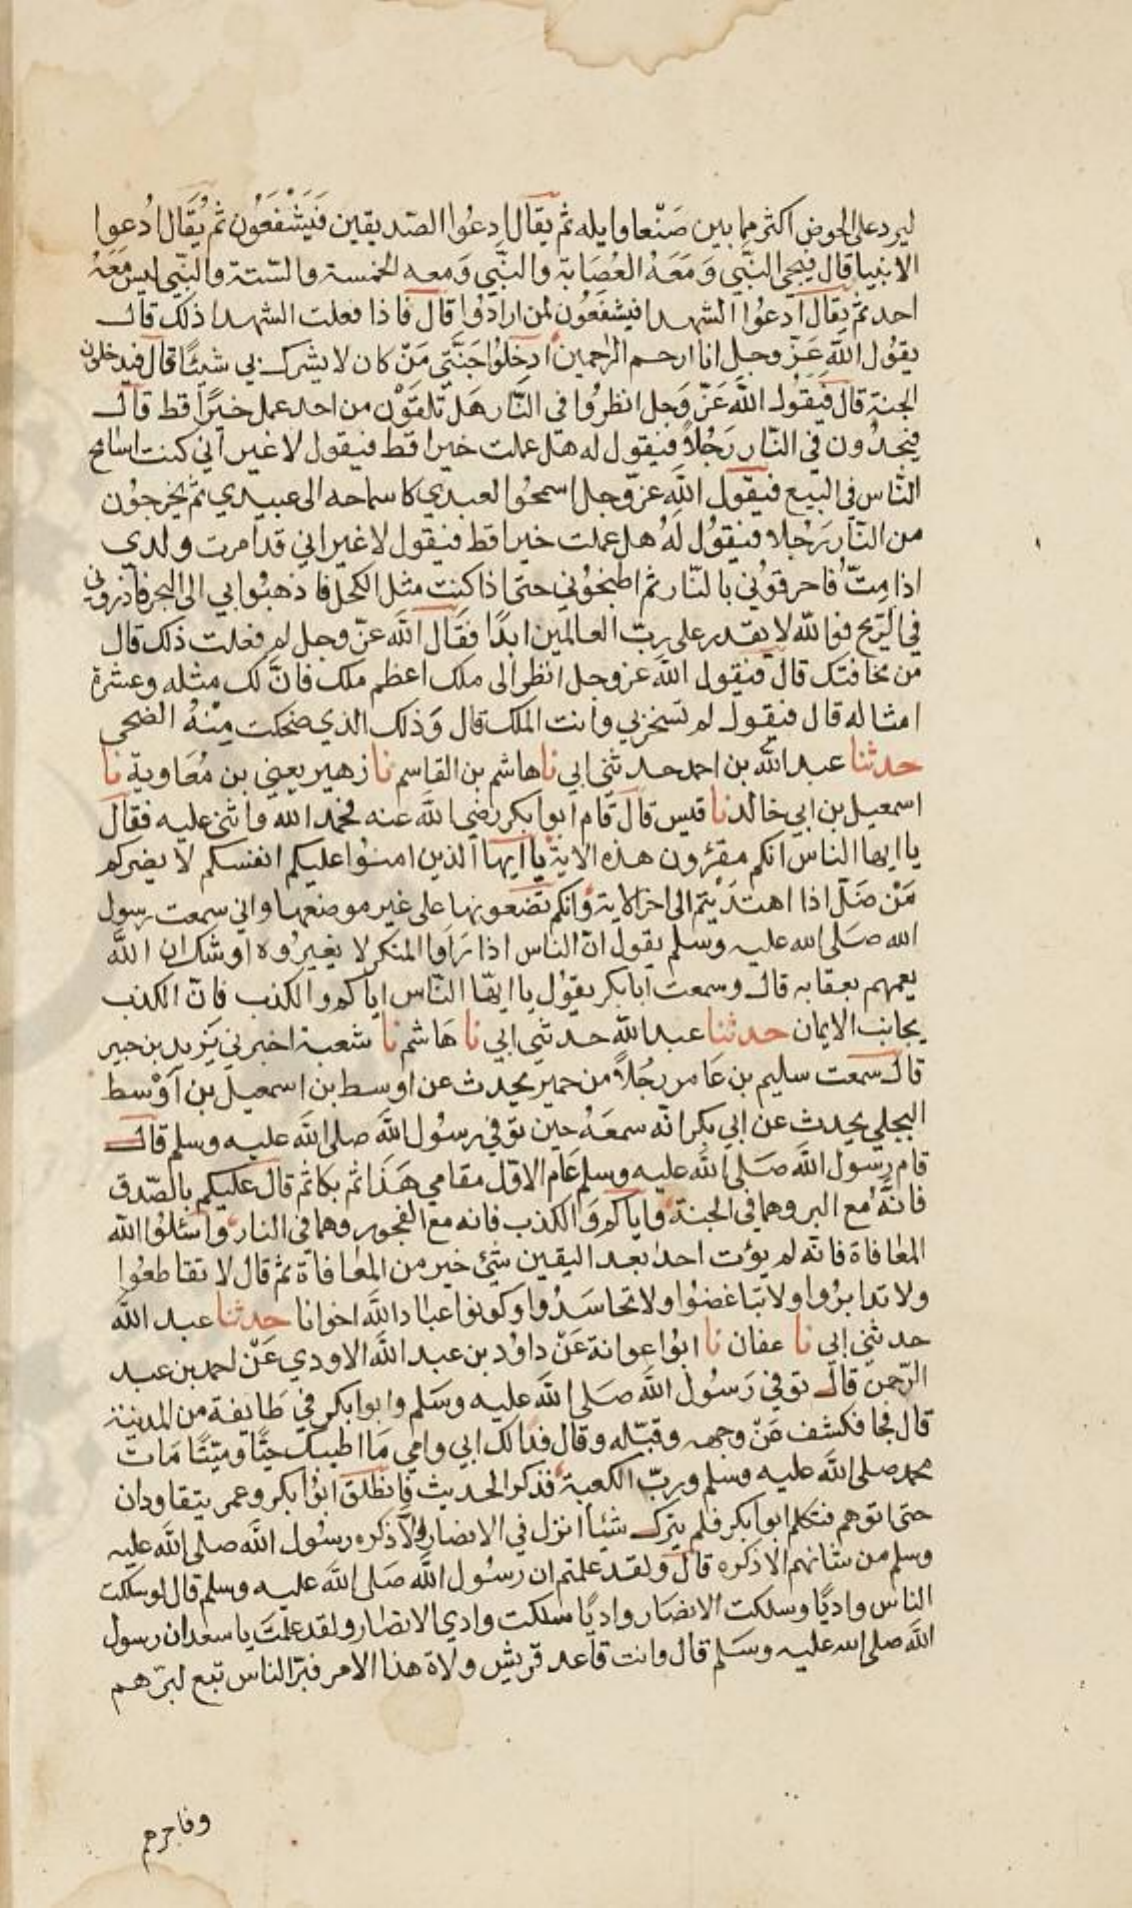 ليرد على الحوض اكثر مما بين صَنْعا وايله ثم يقال ادعُوا الصّديقين فَيَشْفَعُون ثم يُقَال ادُعوا
الانبيا قال فيجي النبَّي وَمَعَهُ العُصَابة والنبَّي وَمعه الخمسة والستّة والنبّي ليس مَعَهُ
احد ثم يقال ادعُوا الشهدا فيشفَعُون لمن ارادُوا قال فاذا فعلت الشهدا ذلك قال
يقول اللَّه عَزّ وجل انا ارحم الراحمين ادخلوُا جَنَّتي مَنْ كان لا يشرك بي شيئًا قال فيدخلون
الجنة قال فَيقُول اللَّه عَزّ وَجل انظرُوا في النَّار هَل تلقَوْن من احد عمل خيًرا قط قال
فيجدُون في النّار رَجُلاً فيقول له هل عملت خيرا قط فيقول لا غير اني كنت اسامح
النّاس في البيع فيقول اللَّه عزّ وجل اسمحُوا لعبدي كاسماحه الى عبيدي ثم يخرجوُن
من النّار رَجُلا فيقوُل لَهُ هل عملت خيرا قط فيقول لا غير اني قد امرت ولدي
اذا مِتّ فاحرقوُني بالنّار ثم اطبخوُني حتى اذا كنت مثل الكحل فاذهبوُا بي الى البحر فاذروني
في الرّيح فوالله لا يقدر على ربّ العالمين ابدًا فقَال اللَّه عزّ وجل لم فعلت ذلك قال
من مخافتك قال فيقول اللَّه عز وجل انظر الى ملك اعظم ملك فانَّ لك مثله وعشرة
امثاله قال فيقول لم تسخر بي وانت الملك قال وَذلك الذي ضحكت مِنْهُ الضحى
حدثنا عبد اللَّه بن احمد حدثني ابي نا هاشم بن القاسم نا زهير يعني بن مُعَاوية نا
اسمعيل بن ابي خالد نا قيس قال قام ابوا بكر رضي اللَّه عنه فحمد الله واثنى عليه فقال
يا ايها الناس انكم مقرُون هذه الاية يا ايها الذين امنوُا عليكم انفسكم لا يضركم
مَنْ ضَلّ اذا اهتدَيْتم الى اخر الاية وانكم تضعونها على غير موضعها واني سمعت رسول
الله صَلى الله عليه وسلم يقول انّ الناس اذا رَاَوا المنكر لا يغيرُوه اوشك ان اللَّه
يعمهم بعقابه قال وسمعت ابا بكر يقوُل يا ايهّا النّاس اياكم والكذب فانّ الكذب
يجانب الايمان حدثنا عبد اللَّه حدثني ابي نا هَاشم نا شعبة اخبرني يَزيد بن خمير
قال سمعت سليم بن عَامر رجُلاً من حمير يحدث عن اوسط بن اسمعيل بن اَوْسط
البجلي يحدث عن ابي بكر انّه سمعَهُ حين توفي رسوُل اللَّه صلى اللَّه عليه وسلم قال
قام رسول اللَّه صَلى اللَّه عليه وسلم عَام الاوّل مقامي هَذَا ثم بكا ثم قال عليكم بالصّدق
فانَّهُ مع البر وهما في الجنة واياكم وَالكذب فانه مع الفجور وهما في النار واسئلوُا اللَّه
المعافاة فانّه لم يؤت احد بعد اليقين شيْ خير من المعافاة ثم قال لا تقاطعُوا
ولا تدابرُوا ولا تباغضوُا ولا تحاسَدُوا وكونوا عباد اللَّه اخوانا حدثنا عبد اللَّه
حدثني ابي نا عفان نا ابوُا عوانة عَنْ داوُد بن عبد اللَّه الاودي عَنْ احمد بن عبد
الرّحمن قال توفي رَسوُل اللَّه صَلى اللَّه عليه وسَلم وابوا بكر في طَايفة من المدينة
قال فجا فكشف عَنْ وجهه وقبّله وقال فدا لك ابي وامي مَا اطيبك حيًّا وميّتًا مَات
محمد صلى اللَّه عليه وسلم وربّ الكعبة فذكر الحديث فانطلق ابوُا بكر وعمر يتقاودان
حتى اتوهم فتكلم ابوا بكر فلم يترك شيأ انزل في الانصار ولا ذكره رسُول اللَّه صلى اللَّه عليه
وسلم من شانهم الا ذكره قال ولقد علمتم ان رسُول اللَّه صَلى اللَّه عليه وسلم قال لو سلكت
الناس واديًا وسلكت الانصار واديًا سلكت وادي الانصار ولقد علمتَ يا سعد ان رسول
اللَّه صلى الله عليه وسَلم قال وانت قاعد قريش ولاة هذا الامر فبرّ الناس تبع لبرّهم
وفاجرهم